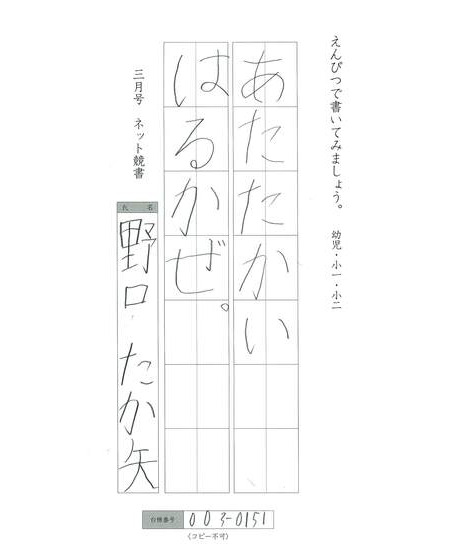 えんぴつで書いてみましょう。 幼児・小一・小二
あたたかい
はるかぜ。
三月号 ネット競書
氏名
野口 たか矢
台帳番号 003-0151
(コピー不可)